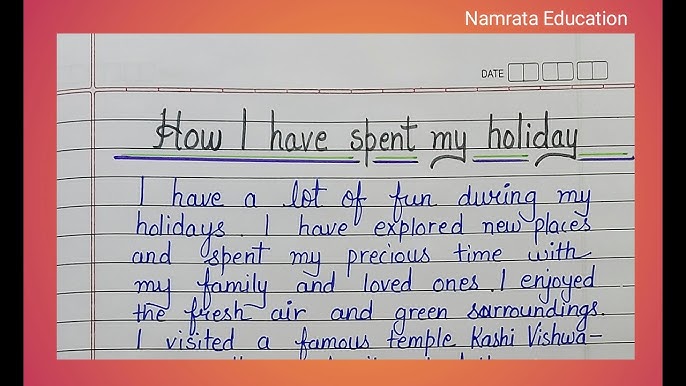 Namrata Education
DATE
How I have spent my holiday
I have a lot of fun during my
holidays. I have explored new places
and spent my precious time with
my family and loved ones. I enjoyed
the fresh air and green surroundings.
I visited a famous temple Kashi Vishwa-